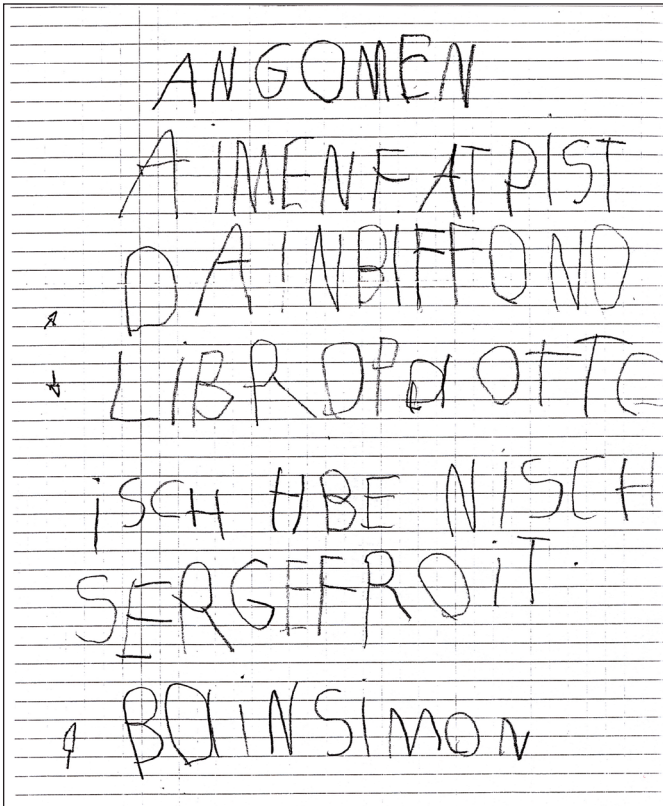 ANGOMEN
AIMENFATPIST
DAINBIFFOND
LiBRDPdOTTO
iSCH HBE NiSCH
SERGEFROiT.
BDiNSiMON